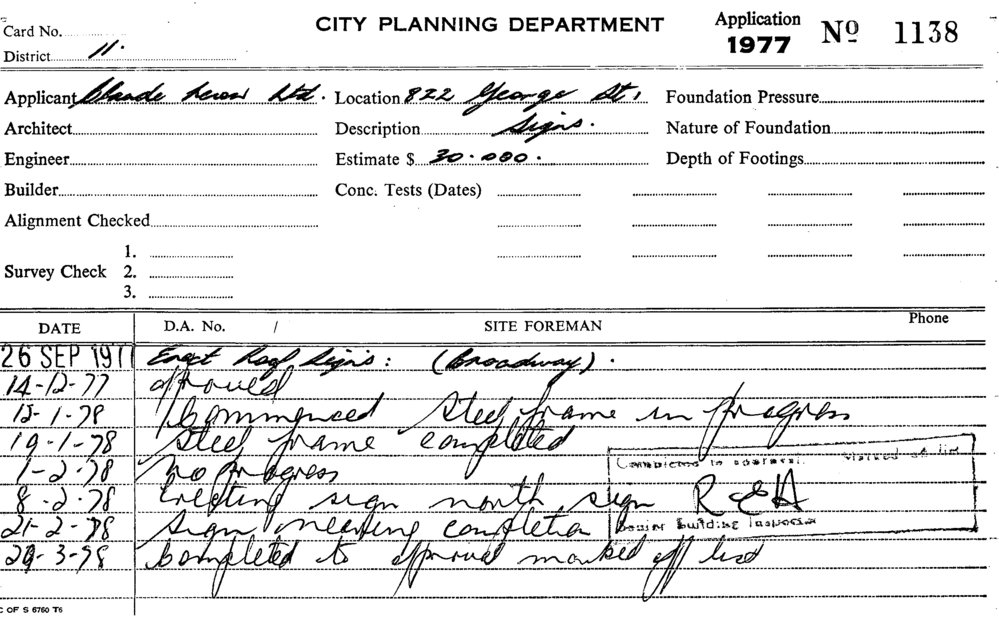 CITY PLANNING DEPARTMENT
Application
1977
Nº 1138
Card No.
District 11.
Applicant Claude Neon Ltd. Location 822 George St, Foundation Pressure
Architect Description Signs. Nature of Foundation
Engineer Estimate $ 30.000. Depth of Footings
Builder Conc. Tests (Dates)
Alignment Checked
1.
Survey Check 2.
3.
DATE D.A. No. / SITE FOREMAN Phone
26 SEP 1977 Erect Roof Signs: (Broadway).
14-12-77 approved
-1-78 Commenced Steel frame in progress
19-1-78 Steel frame completed
1-2-78 No progress
8-2-78 Erecting sign north sign
21-2-78 Sign nearing completion
29-3-78 Completed to approval marked off list
Completed to approval. Marked off list
R E H
Senior Building Inspector
C OF S 6760 T6